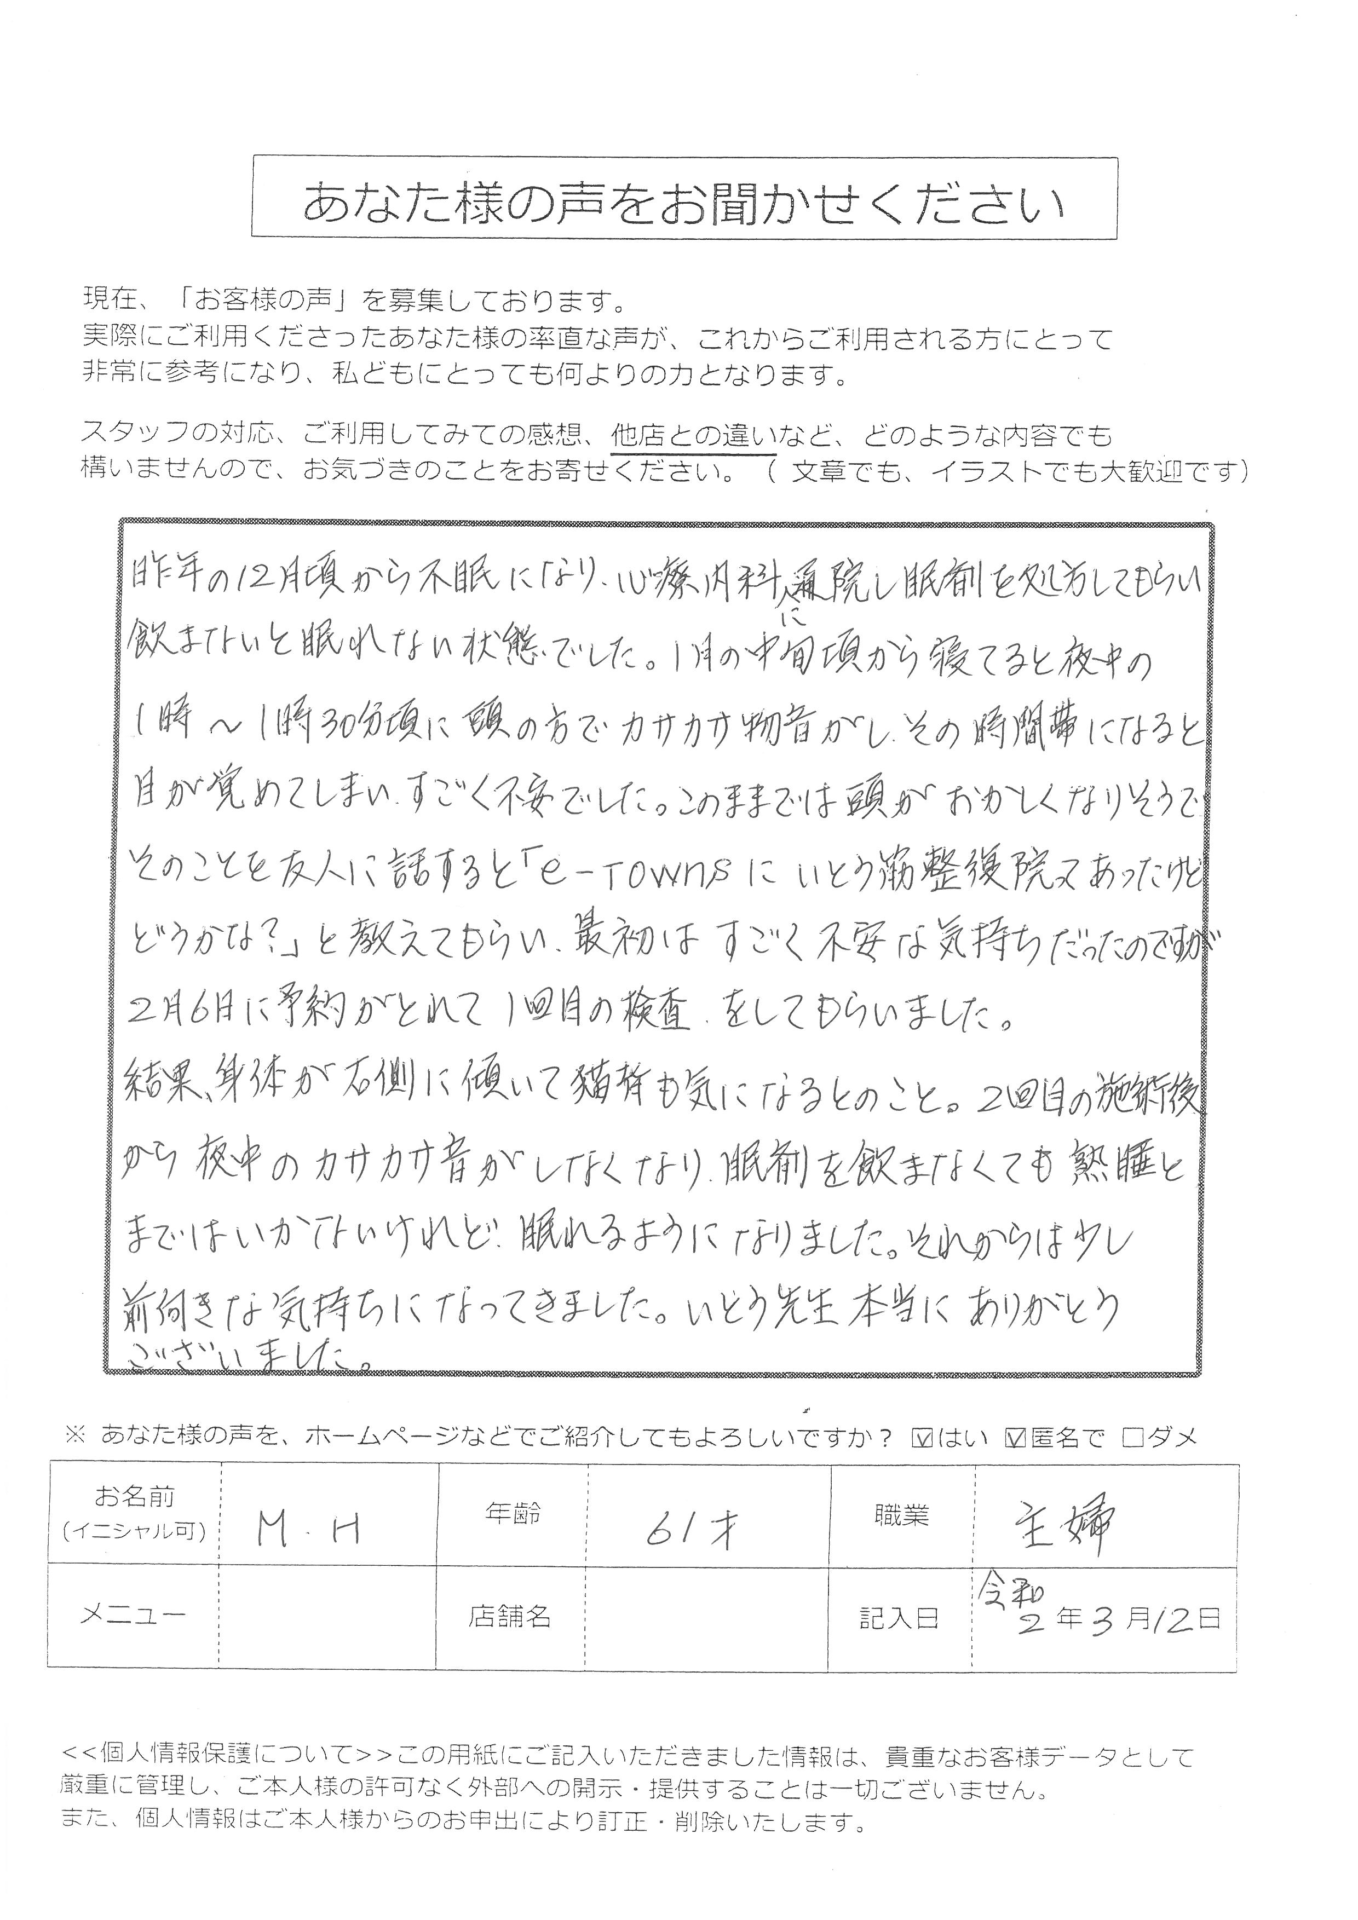 あなた様の声をお聞かせください
現在、「お客様の声」を募集しております。
実際にご利用くださったあなた様の率直な声が、これからご利用される方にとって
非常に参考になり、私どもにとっても何よりの力となります。
スタッフの対応、ご利用してみての感想、他店との違いなど、どのような内容でも
構いませんので、お気づきのことをお寄せください。（文章でも、イラストでも大歓迎です）
昨年の12月頃から不眠になり、心療内科に通院し眠剤を処方してもらい
飲まないと眠れない状態でした。1月の中旬頃から寝てると夜中の
1時～1時30分頃に頭の方でカサカサ物音がし、その時間帯になると
目が覚めてしまい、すごく不安でした。このままでは頭がおかしくなりそうで
そのことを友人に話すると「e-Townsにいとう筋整復院あったけど
どうかな？」と教えてもらい、最初はすごく不安な気持ちだったのですが
2月6日に予約がとれて1回目の検査をしてもらいました。
結果、身体が右側に傾いて猫背も気になるとのこと。2回目の施術後
から夜中のカサカサ音がしなくなり、眠剤を飲まなくても熟睡と
まではいかないけれど、眠れるようになりました。それからは少し
前向きな気持ちになってきました。いとう先生本当にありがとう
ございました。
※ あなた様の声を、ホームページなどでご紹介してもよろしいですか？ ☑はい ☑匿名で □ダメ
お名前 (イニシャル可) M.H 年齢 61才 職業 主婦
メニュー 店舗名 記入日 令和2年3月12日
<<個人情報保護について>>この用紙にご記入いただきました情報は、貴重なお客様データとして
厳重に管理し、ご本人様の許可なく外部への開示・提供することは一切ございません。
また、個人情報はご本人様からのお申出により訂正・削除いたします。